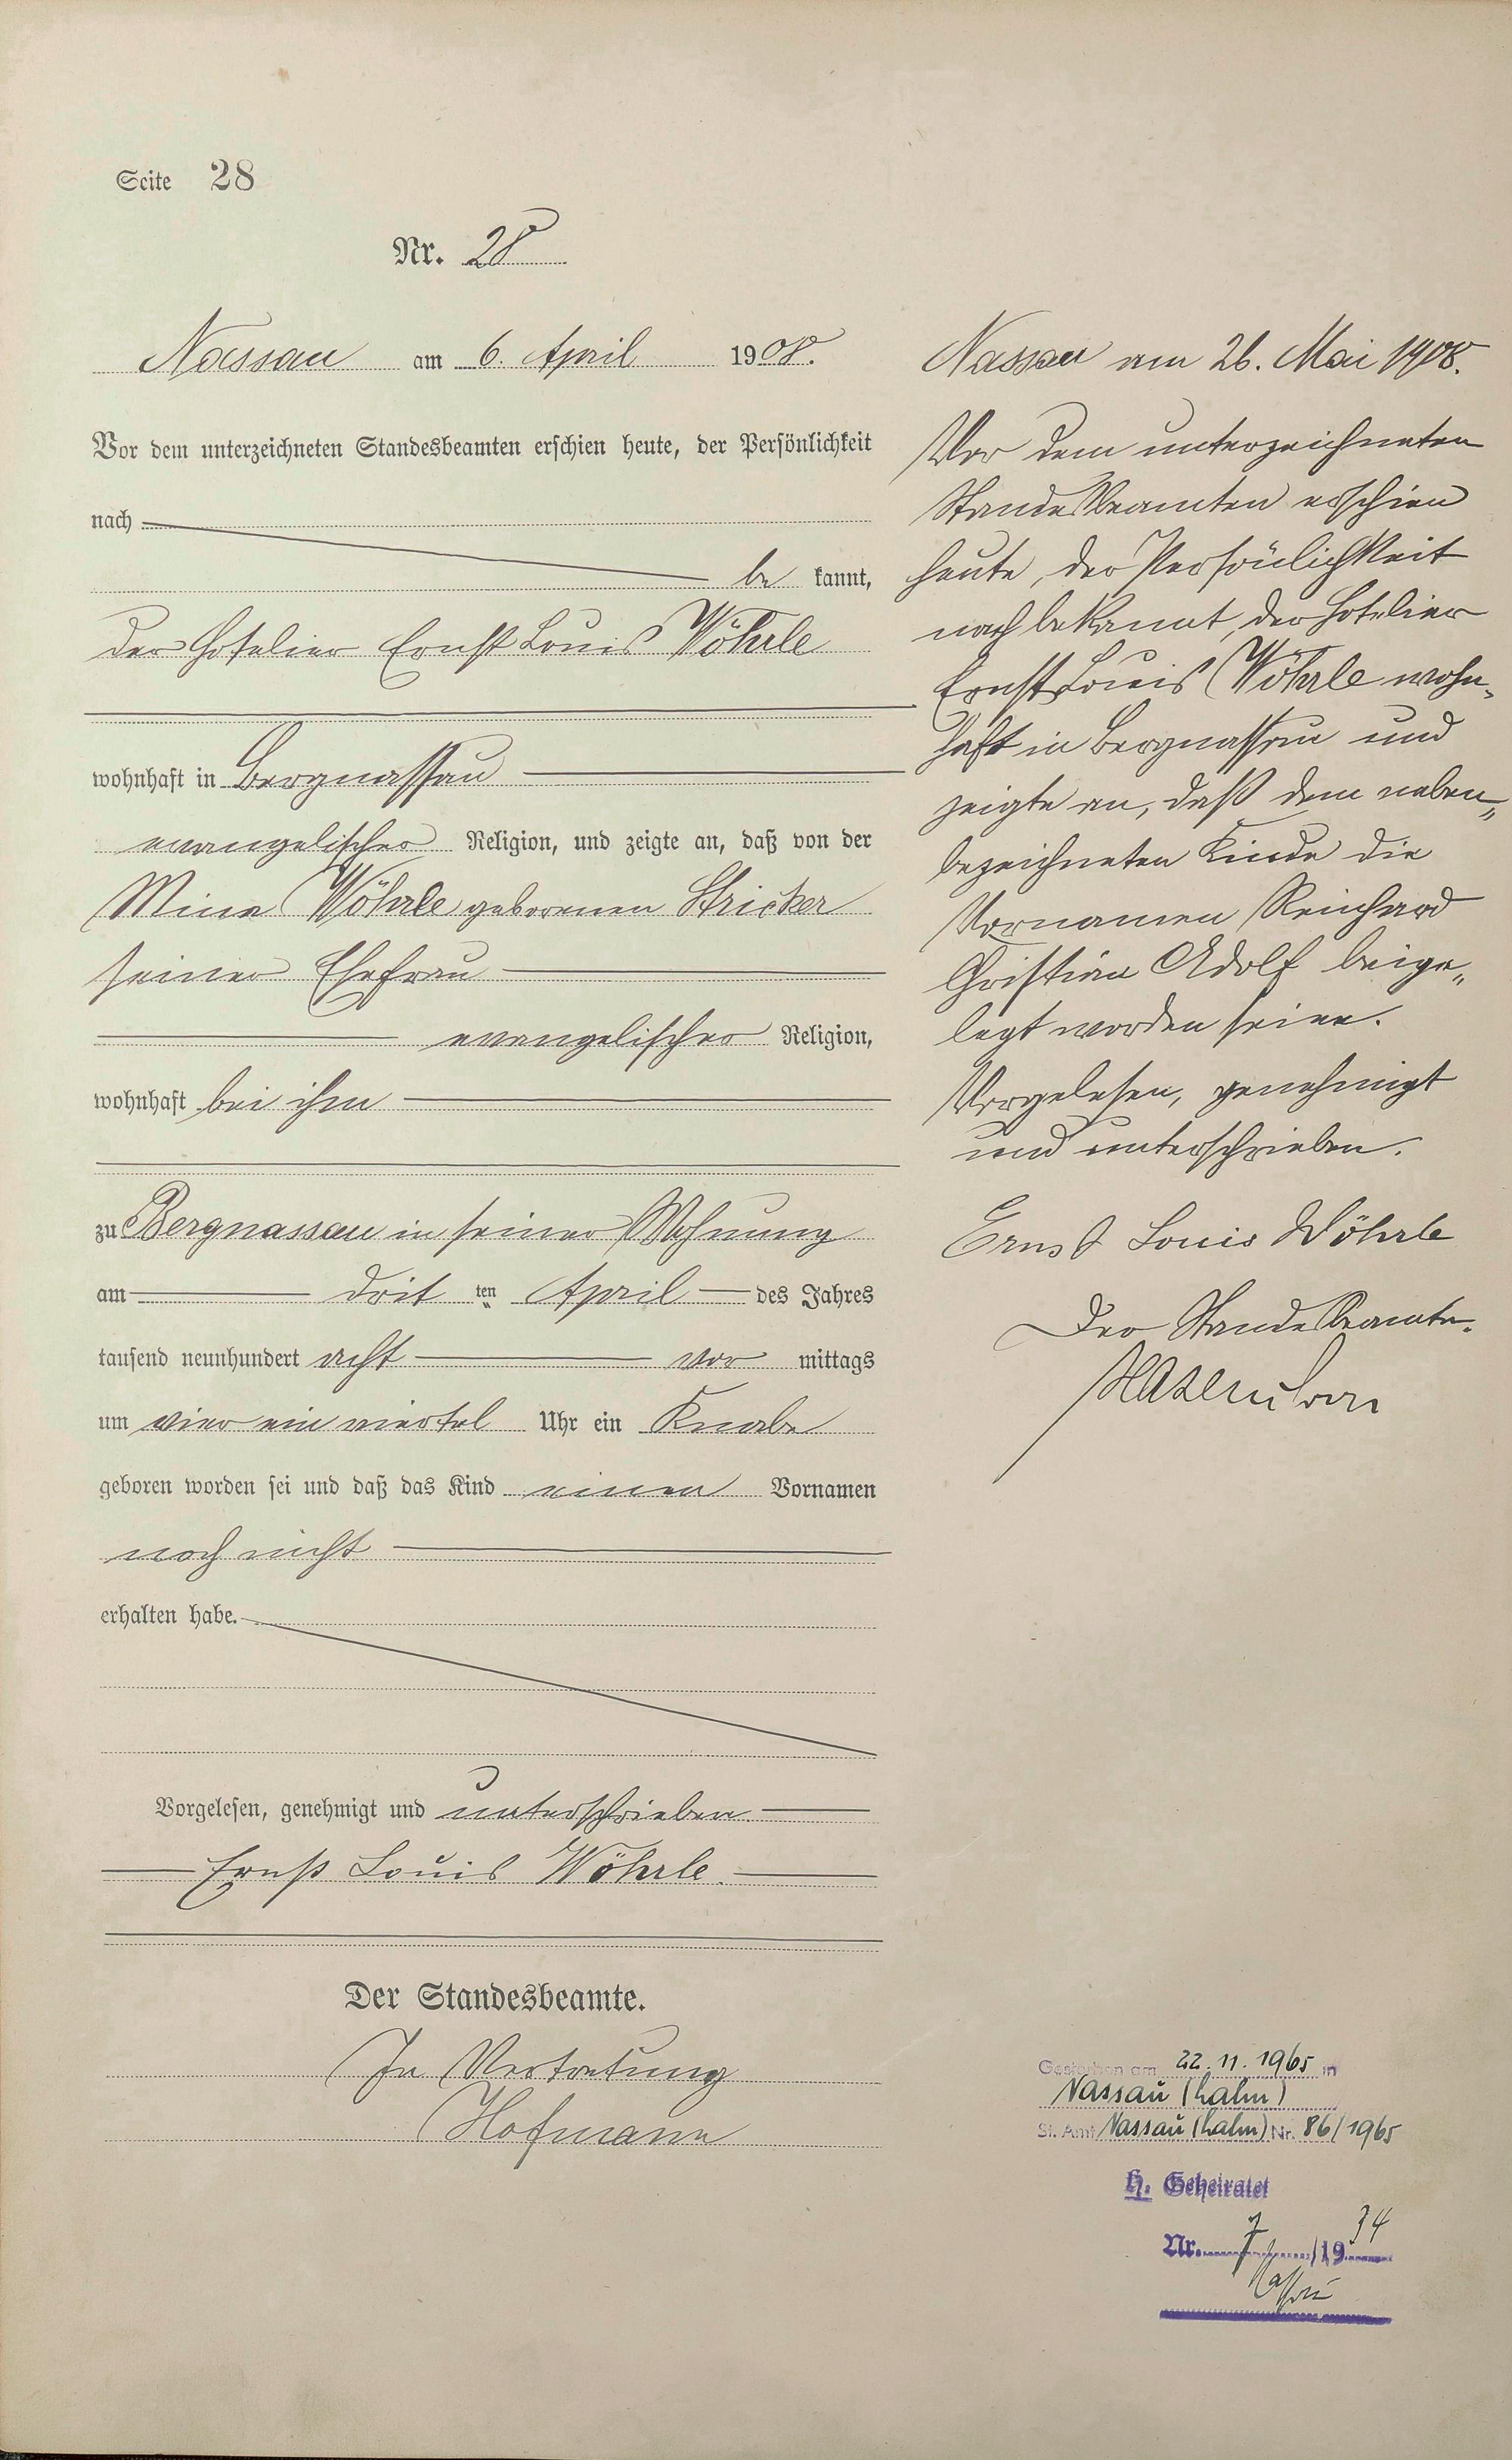 Seite 28
Nr. 28
Nassau am 6. April 1908.
Vor dem unterzeichneten Standesbeamten erschien heute, der Persönlichkeit
nach
be kannt,
der Hotelier Ernst Louis Wöhrle
wohnhaft in Bergnassau
evangelischer Religion, und zeigte an, daß von der
Mina Wöhrle geborenen Stricker
seiner Ehefrau
evangelischer Religion,
wohnhaft bei ihm
zu Bergnassau in seiner Wohnung
am drit ten April des Jahres
tausend neunhundert acht vor mittags
um vier ein viertel Uhr ein Knabe
geboren worden sei und daß das Kind einen Vornamen
noch nicht
erhalten habe.
Vorgelesen, genehmigt und unterschrieben
Ernst Louis Wöhrle.
Der Standesbeamte.
In Vertretung
Hofmann
Nassau am 26. Mai 1908.
Vor dem unterzeichneten
Standesbeamten erschien
heute, der Persönlichkeit
nach bekannt, der Hotelier
Ernst Louis Wöhrle wohn-
haft in Bergnassau und
zeigte an, daß dem neben-
bezeichneten Kinde die
Vornamen Reinhard
Christian Adolf beige-
legt worden seien.
Vorgelesen, genehmigt
und unterschrieben.
Ernst Louis Wöhrle
Der Standesbeamte.
Gestorben am 22.11.1965 in
Nassau (Lahn)
St. Amt Nassau (Lahn) Nr. 86/1965
H. Geheiratet
Nr. 7/1934
Nassau